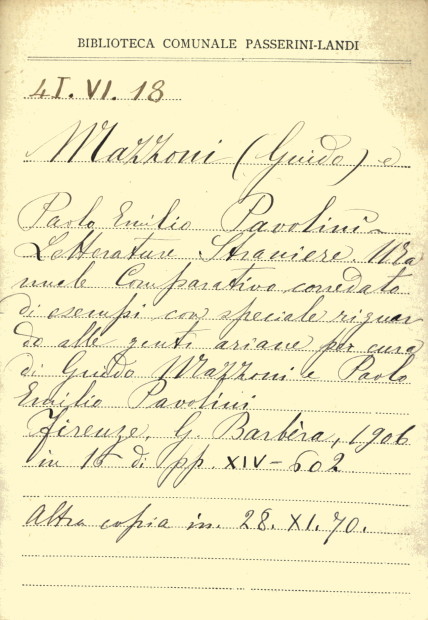 BIBLIOTECA COMUNALE PASSERINI-LANDI
4I. VI. 18
Mazzoni (Guido) e
Paolo Emilio Pavolini -
Letterature Straniere. Ma
nuale Comparativo corredato
di esempi con speciale riguar-
do alle genti ariane per cura
di Guido Mazzoni e Paolo
Emilio Pavolini
Firenze, G. Barbèra, 1906
in 16 di pp. XIV-602
Altra copia in. 28. XI. 70.